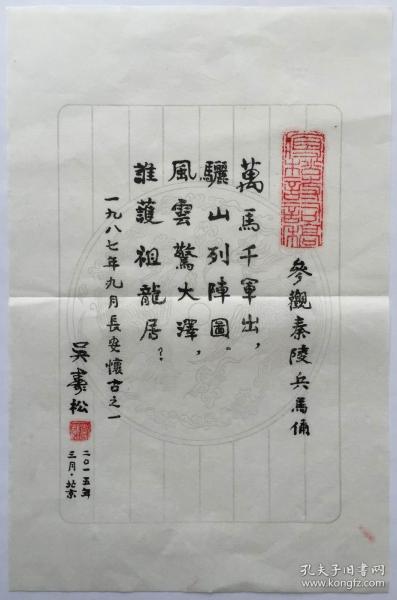 參觀秦陵兵馬俑
萬馬千軍出，
驪山列陣圖。
風雲驚大澤，
誰護祖龍居？
一九八七年九月長安懷古之一
吴壽松
二〇一五年
三月·北京
孔夫子旧书网
www.kongfz.com